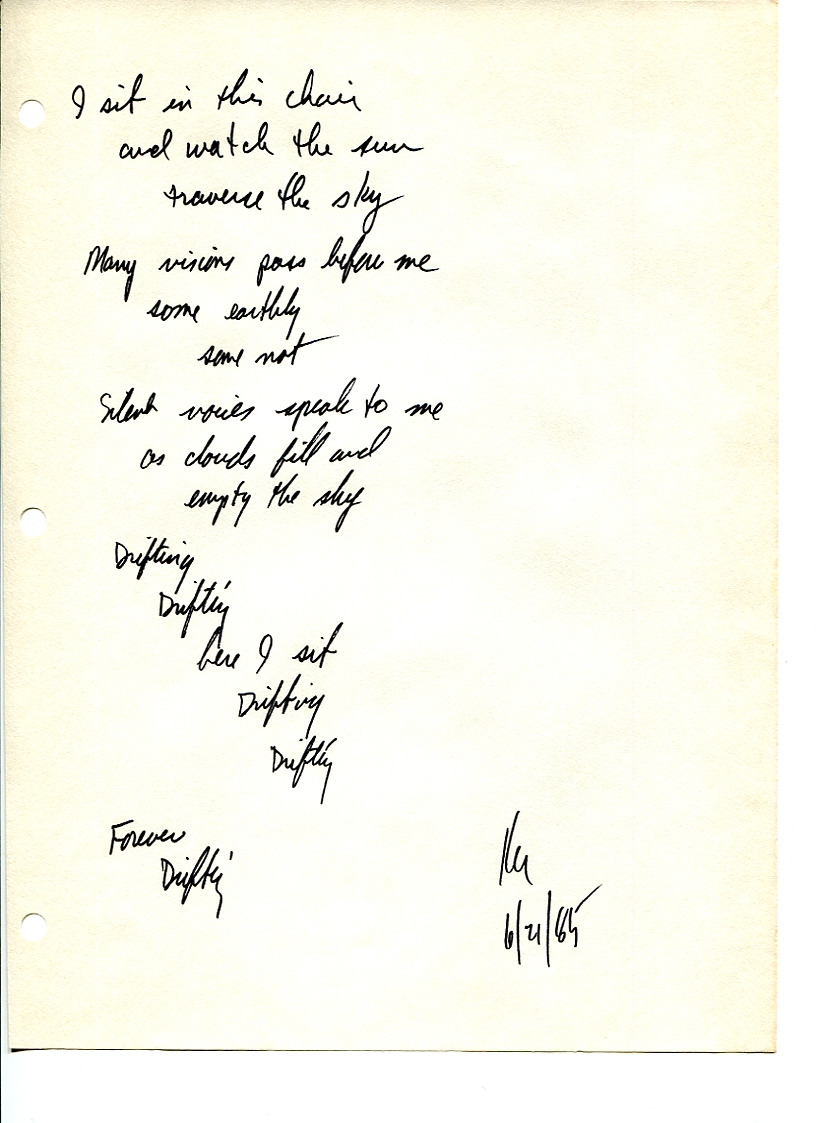 I sit in this chair
and watch the sun
traverse the sky
Many visions pass before me
some earthly
some not
Silent voices speak to me
as clouds fill and
empty the sky
Drifting
Drifting
here I sit
Drifting
Drifting
Forever
Drifting
6/21/85